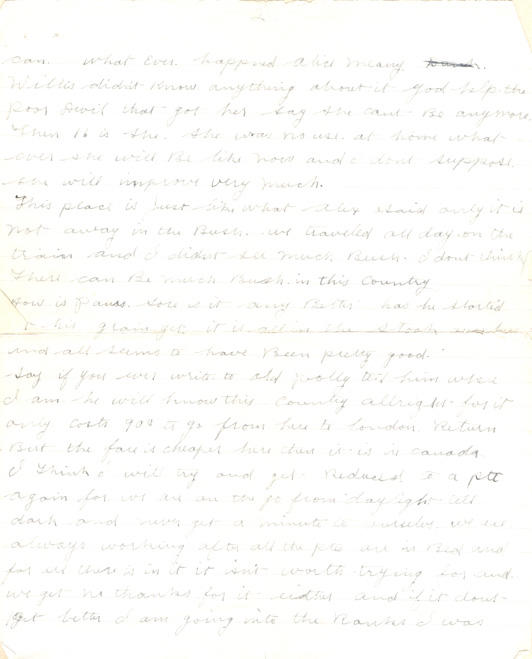 can. what Ever happned Alice Meany
Willis didn't know anything about it god help the
poor Devil that got her say she cant Be anymore
Then 16 is she. She was no use at home what
ever she will Be like now and i dont suppose
she will improve very much.
This place is Just like what Alex said only it is
not away in the Bush. we traveled all day on the
train and I didnt see much Bush. I dont think
There can Be much Bush in this Country
How is Paws sore is it any Better has he started
to his grain yet it is all in the stook
and all seems to have Been pretty good.
Say if you ever write to old polly tell him where
I am he will know this Country allright for it
only costs 90¢ to go from here to London Return
But the fare is cheaper here then it is in Canada
I Think i will try and get Reduced to a pte
again for we are on the go from daylight till
dark and never get a minute to ourselves we are
always working after all the ptes are in Bed and
for us there is in it it isnt worth trying for and
we get no thanks for it either and if it dont
get better I am going into the Ranks I was